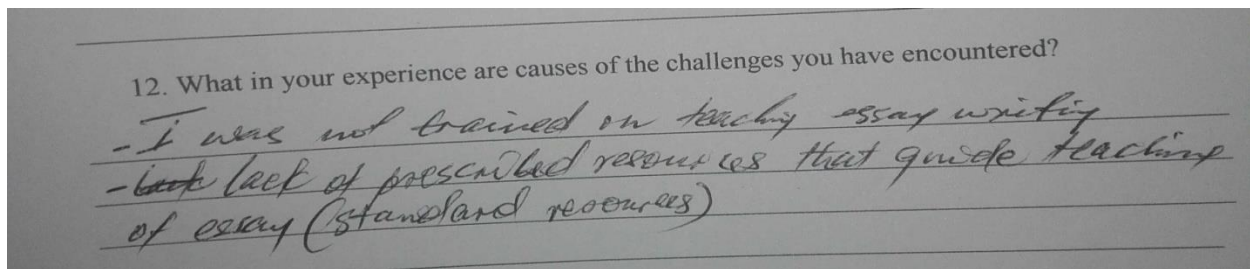 12. What in your experience are causes of the challenges you have encountered?
- I was not trained on teaching essay writing
- lack of prescribed resources that guide teaching
of essay (standard resources)